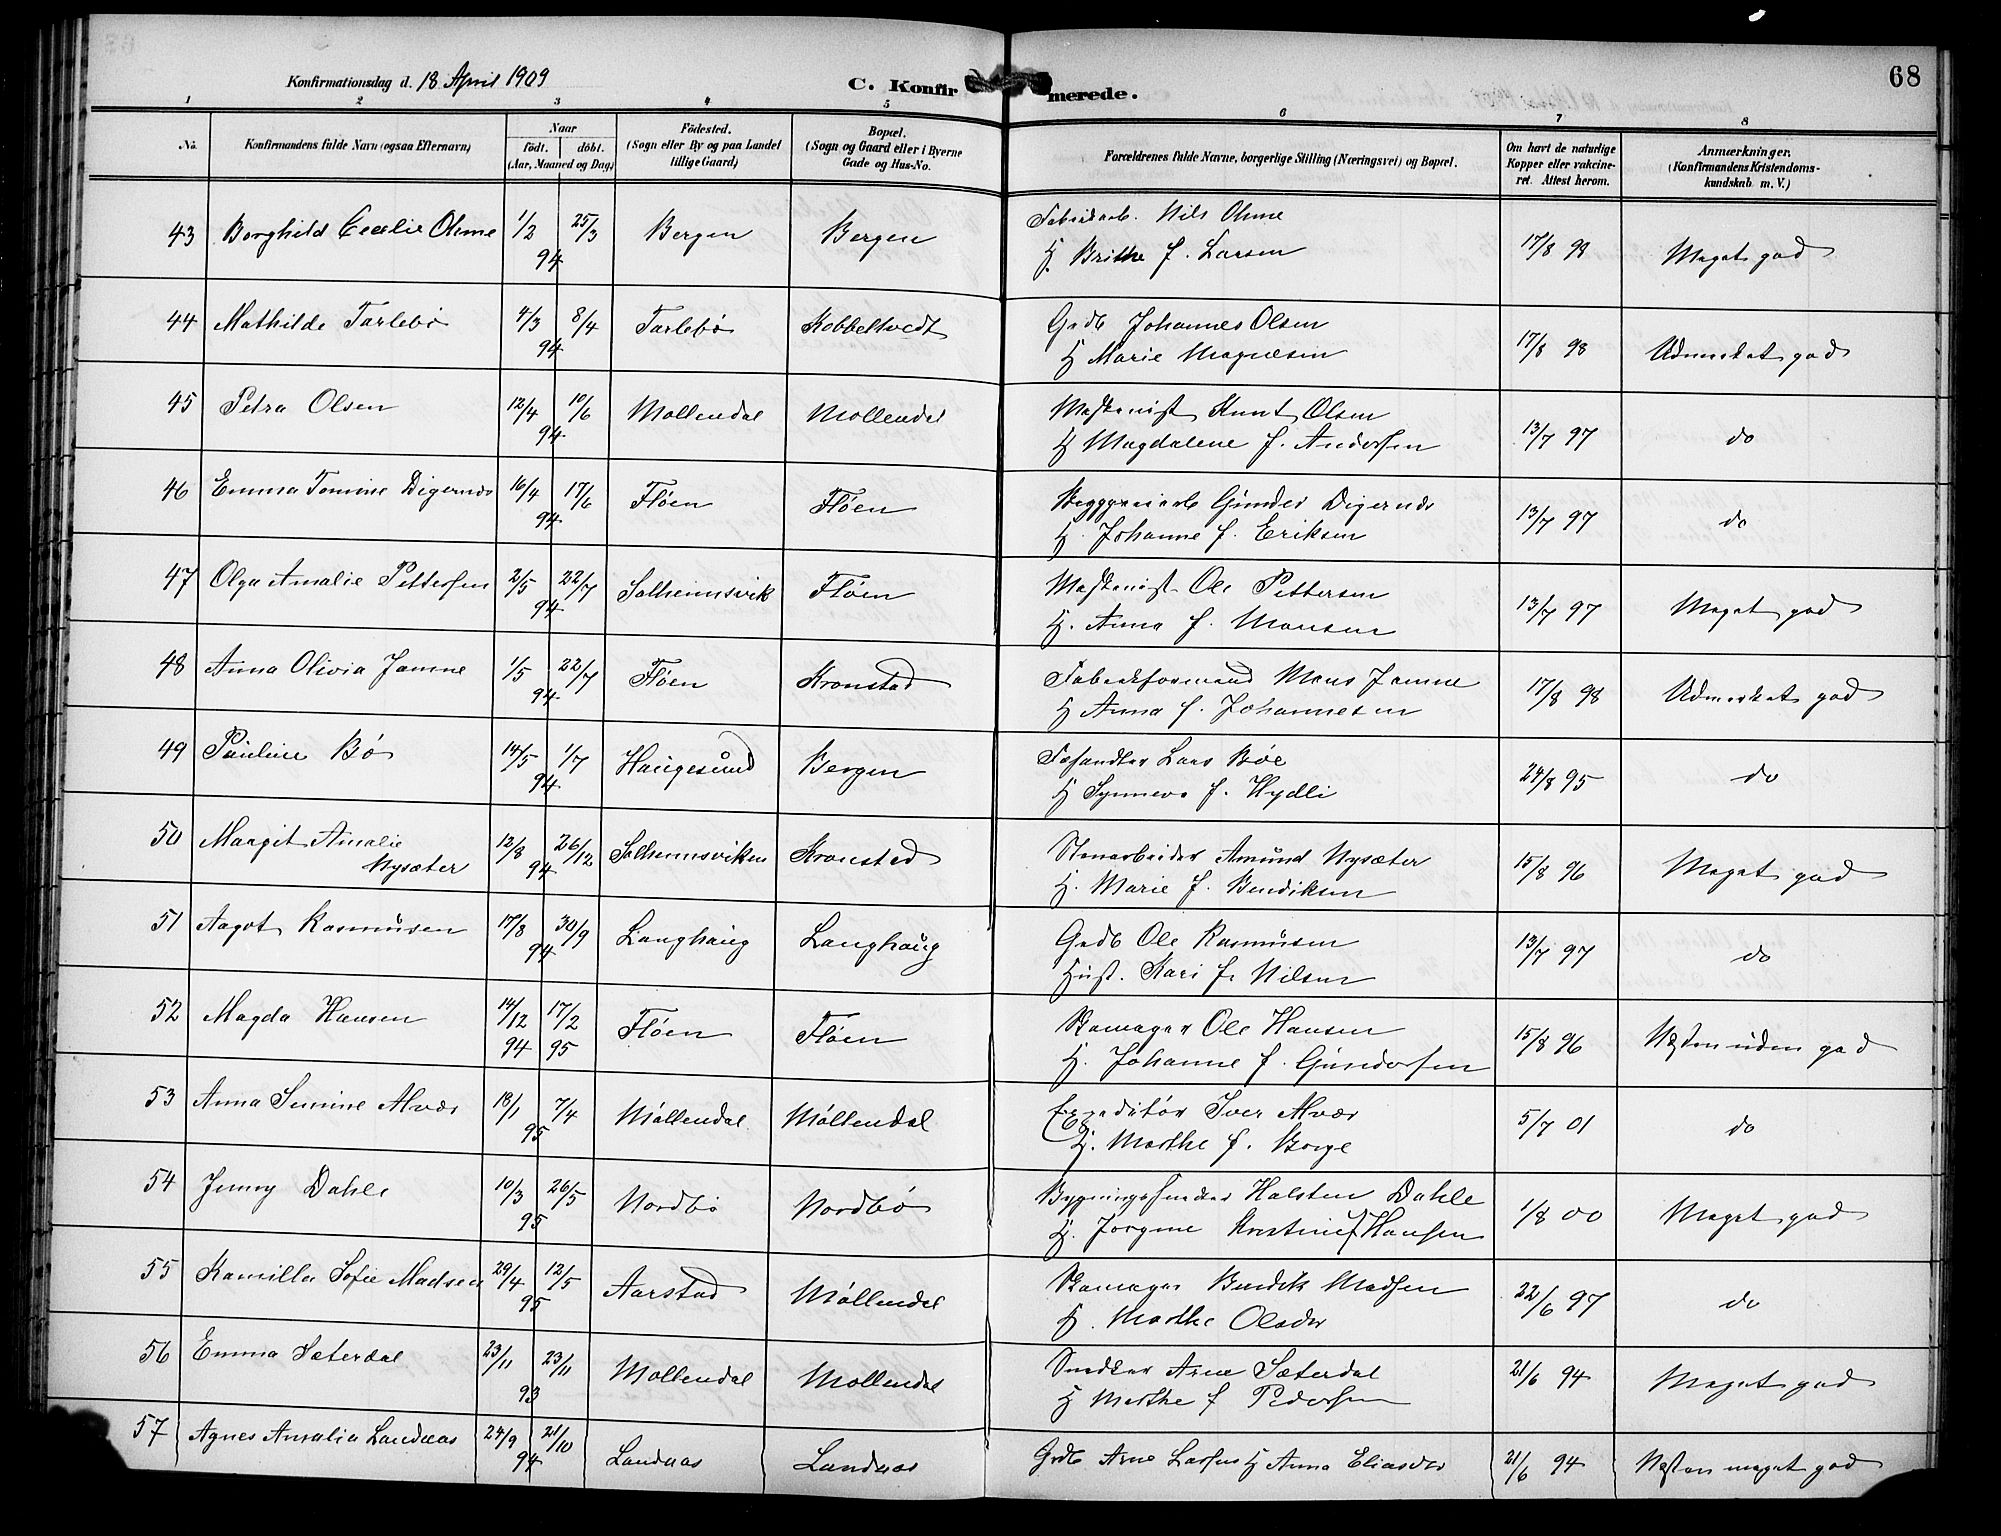 68
Konfirmationsdag d. 18 April 1909
C. Konfirmerede.
1 2 3 4 5 6 7 8
No. Konfirmandens fulde Navn (ogsaa Efternavn) Naar födt. döbt. (Aar, Maaned og Dag) Födested. (Sogn eller By og paa Landet tillige Gaard) Bopæl. (Sogn og Gaard eller i Byerne Gade og Hus-No. Forældrenes fulde Navne, borgerlige Stilling (Næringsvei) og Bopæl. Om havt de naturlige Kopper eller vakcineret. Attest herom. Anmærkninger. (Konfirmandens Kristendomskundskab m. V.)
43 Borghild Cecelie Ohme 1/2 25/3 94 Bergen Bergen Fabrikarb. Nils Ohme
H. Brithe f. Larsen 17/8 98 Meget god
44 Mathilde Tarlebø 4/3 8/4 94 Tarlebø Kobbeltvedt Grdb Johannes Olsen
H Marie Magnesen 17/8 98 Udmerket god
45 Petra Olsen 12/4 10/6 94 Møllendal Møllendal Maskenist Knut Olsen
H Magdalene f. Andersen 13/7 97 do
46 Emma Tomine Digernes 16/4 17/6 94 Fløen Fløen Gunder Digernes
H. Johanne f. Eriksen 13/7 97 do
47 Olga Amalie Pettersen 2/5 22/7 94 Solheimsvik Fløen Maskenist Ole Pettersen
H. Anna f. Monsen 13/7 97 Meget god
48 Anna Olivia Jamne 1/5 22/7 94 Fløen Kronstad Fabrikformand Mons Jamne
H Anna f. Johannesen 17/8 98 Udmerket god
49 Pauline Bø 14/5 1/7 94 Haugesund Bergen Lars Bøe
H Synneva f. Hydli 24/8 95 do
50 Margit Amalie
Nysæter 12/8 26/12 94 Solheimsviken Kronstad Stenarbeider Amund Nysæter
H. Marie f. Bendiksen 15/8 96 Meget god
51 Aagot Rasmusen 17/8 30/9 94 Langhaug Langhaug Grdb Ole Rasmusen
Hust. Kari f. Nilsen 13/7 97 do
52 Magda Hansen 14/12 94 17/2 95 Fløen Fløen Skomager Ole Hansen
H. Johanne f. Gundersen 15/8 96 Næsten uden god
53 Anna Semine Alvær 18/1 7/4 95 Møllendal Møllendal Expeditør Iver Alvær
H. Marthe f. Borge 5/7 01 do
54 Jenny Dahle 10/3 26/5 95 Nordbø Nordbø Bygningssnedker Halsten Dahle
H. Jorgine Kristine f Hansen 1/8 00 Meget god
55 Kamilla Sofie Madsen 29/4 12/5 95 Aarstad Møllendal Skomager Bendik Madsen
H. Marthe Olsdtr 22/6 97 do
56 Emma Sæterdal 23/11 23/11 93 Møllendal Møllendal Snedker Arne Sæterdal
H Marthe f Pedersen 21/6 94 Meget god
57 Agnes Amalia Landaas 24/9 21/10 94 Landaas Landaas Grdb Arne Larsen H Anna Eliasdtr 21/6 94 Næsten meget god